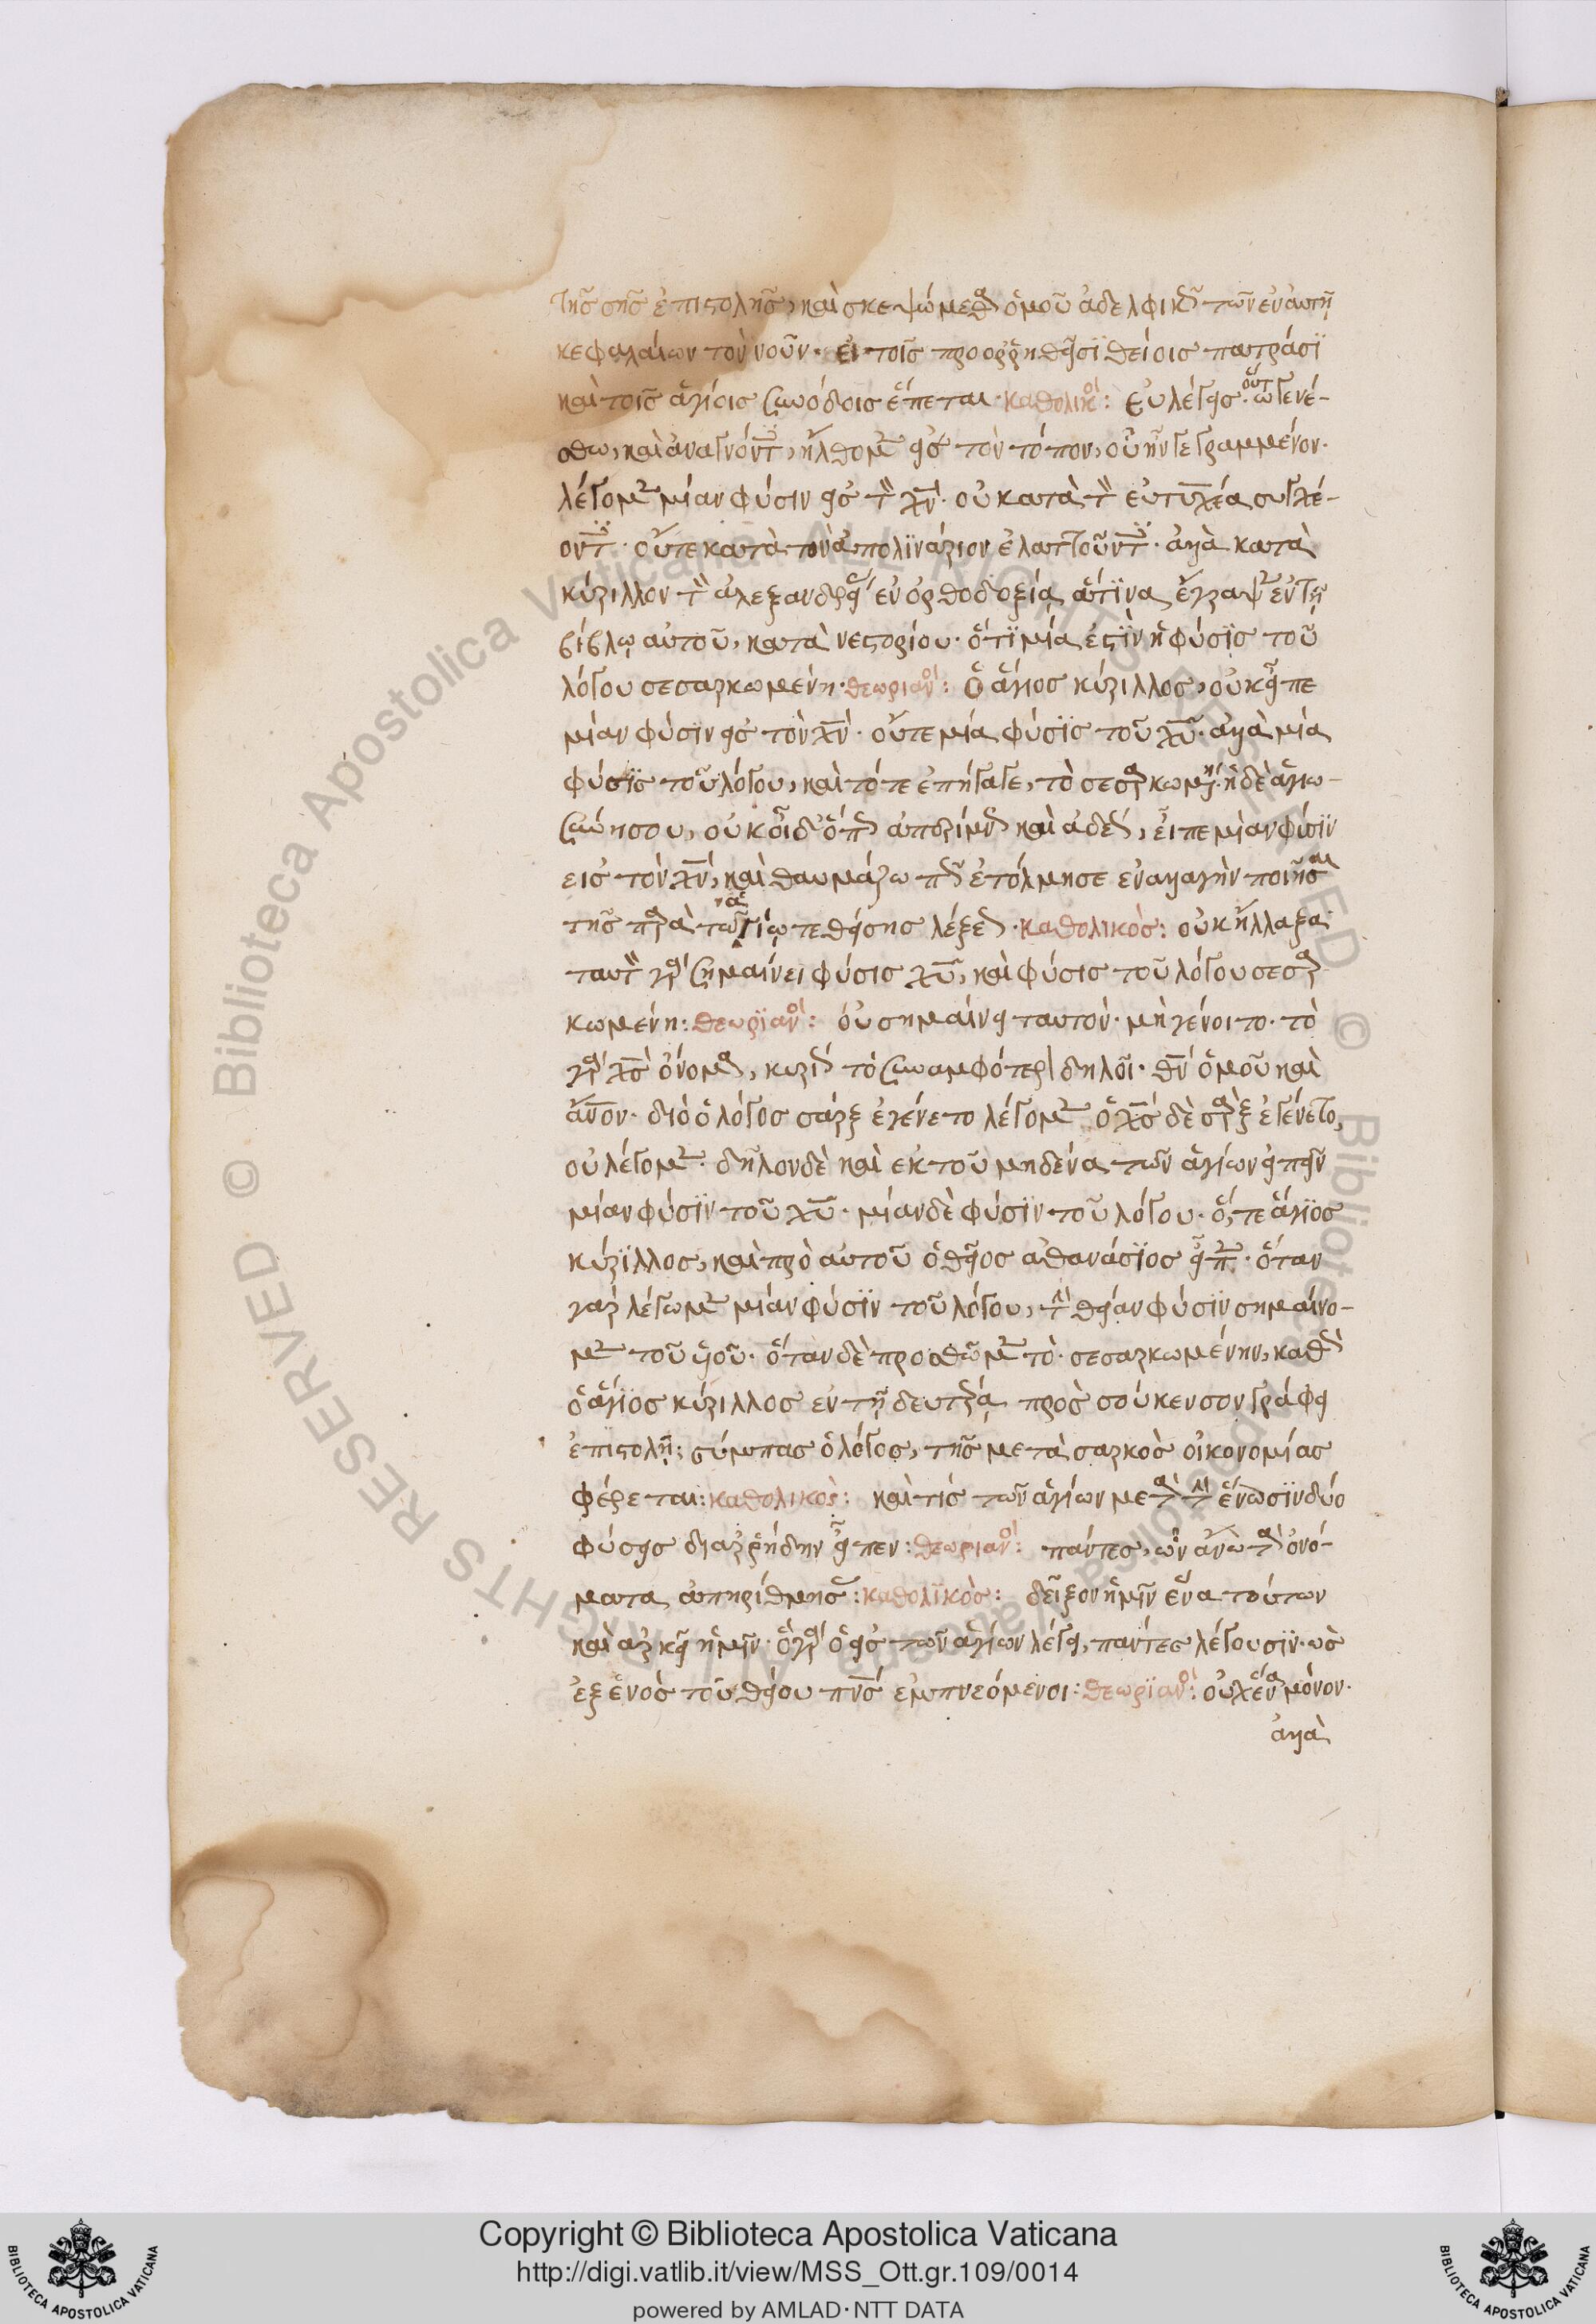 τῆς σῆς ἐπιστολῆς, καὶ σκεψώμεθα ὁμοῦ ἀδελφικῶς τῶν ἐν αὐτῇ
κεφαλαίων τὸν νοῦν· εἰ τοῖς προρρηθεῖσι θείοις πατράσι
καὶ τοῖς ἁγίοις συνόδοις ἕπεται· καθολικός: εὖ λέγεις· οὕτω γενέ-
σθω, καὶ ἀναγνόντες, ἤλθομεν εἰς τὸν τόπον, οὗ ἦν γεγραμμένον·
λέγομεν μίαν φύσιν εἰς τὸν χν· οὐ κατὰ τὸν εὐτυχέα συγχέ-
οντες· οὔτε κατὰ τὸν ἀπολινάριον ἐλαττοῦντες· ἀλλὰ κατὰ
κύριλλον τὸν ἀλεξανδρείας ἐν ὀρθοδοξίᾳ ἅτινα ἔγραψεν ἐν τῇ
βίβλῳ αὐτοῦ, κατὰ νεστορίου· ὅτι μία ἐστὶν ἡ φύσις τοῦ
λόγου σεσαρκωμένη· θεωριανός: ὁ ἅγιος κύριλλος, οὐκ εἶπε
μίαν φύσιν εἰς τὸν χν· οὔτε μία φύσις τοῦ χυ· ἀλλὰ μία
φύσις τοῦ λόγου, καὶ τότε ἐπήγαγε, τὸ σεσαρκωμένη· ἡ δὲ ἁγιω-
σύνη σου, οὐκ οἶδ' ὅπως εἶπε μίαν φύσιν
εἰς τὸν χν, καὶ θαυμάζω πῶς ἐτόλμησε ἐναλλαγὴν ποιῆσαι
τῆς παρὰ τῶν ἁγίων τεθείσης λέξεως· καθολικὸς: οὐκ ἤλλαξα·
ταυτὸν γὰρ σημαίνει φύσις χυ, καὶ φύσις τοῦ λόγου σεσαρ
κωμένη: θεωριανός: οὐ σημαίνει ταυτόν· μὴ γένοιτο· τὸ
γὰρ χς ὄνομα, κυρίως τὸ συναμφότερον δηλοῖ· θν ὁμοῦ καὶ
ἄνον· διὸ ὁ λόγος σάρξ ἐγένετο λέγομεν, ὁ χς δὲ σάρξ ἐγένετο,
οὐ λέγομεν· δῆλον δὲ καὶ ἐκ τοῦ μηδένα τῶν ἁγίων εἰπεῖν
μίαν φύσιν τοῦ χυ· μίαν δὲ φύσιν τοῦ λόγου· ὅ, τε ἅγιος
κύριλλος, καὶ πρὸ αὐτοῦ ὁ θεῖος ἀθανάσιος εἶπεν· ὅταν
γὰρ λέγωμεν μίαν φύσιν τοῦ λόγου, τὴν θείαν φύσιν σημαίνο-
μεν τοῦ υἱοῦ· ὅταν δὲ προσθῶμεν τὸ· σεσαρκωμένην, καθὼς
ὁ ἅγιος κύριλλος ἐν τῇ δευτέρᾳ πρὸς σούκενσον γράφει
ἐπιστολῇ; σύμπας ὁ λόγος, τῆς μετὰ σαρκὸς οἰκονομίας
φέρεται: καθολικὸς: καὶ τίς τῶν ἁγίων μετὰ τὴν ἕνωσιν δύο
φύσεις διαρρήδην εἶπεν: θεωριανός: πάντες, ὧν ἄνω τὰ ὀνό-
ματα ἀπηρίθμησα: καθολικὸς: δεῖξον ἡμῖν ἕνα τούτων
καὶ ἀρκεῖ ἡμῖν· ὃ γὰρ ὁ εἷς τῶν ἁγίων λέγει, πάντες λέγουσιν· ὡς
ἐξ ἑνὸς τοῦ θείου πνς ἐμπνεόμενοι: θεωριανός: οὐχ ἕνα μόνον·
ἀλλὰ
Copyright © Biblioteca Apostolica Vaticana
http://digi.vatlib.it/view/MSS_Ott.gr.109/0014
powered by AMLAD·NTT DATA